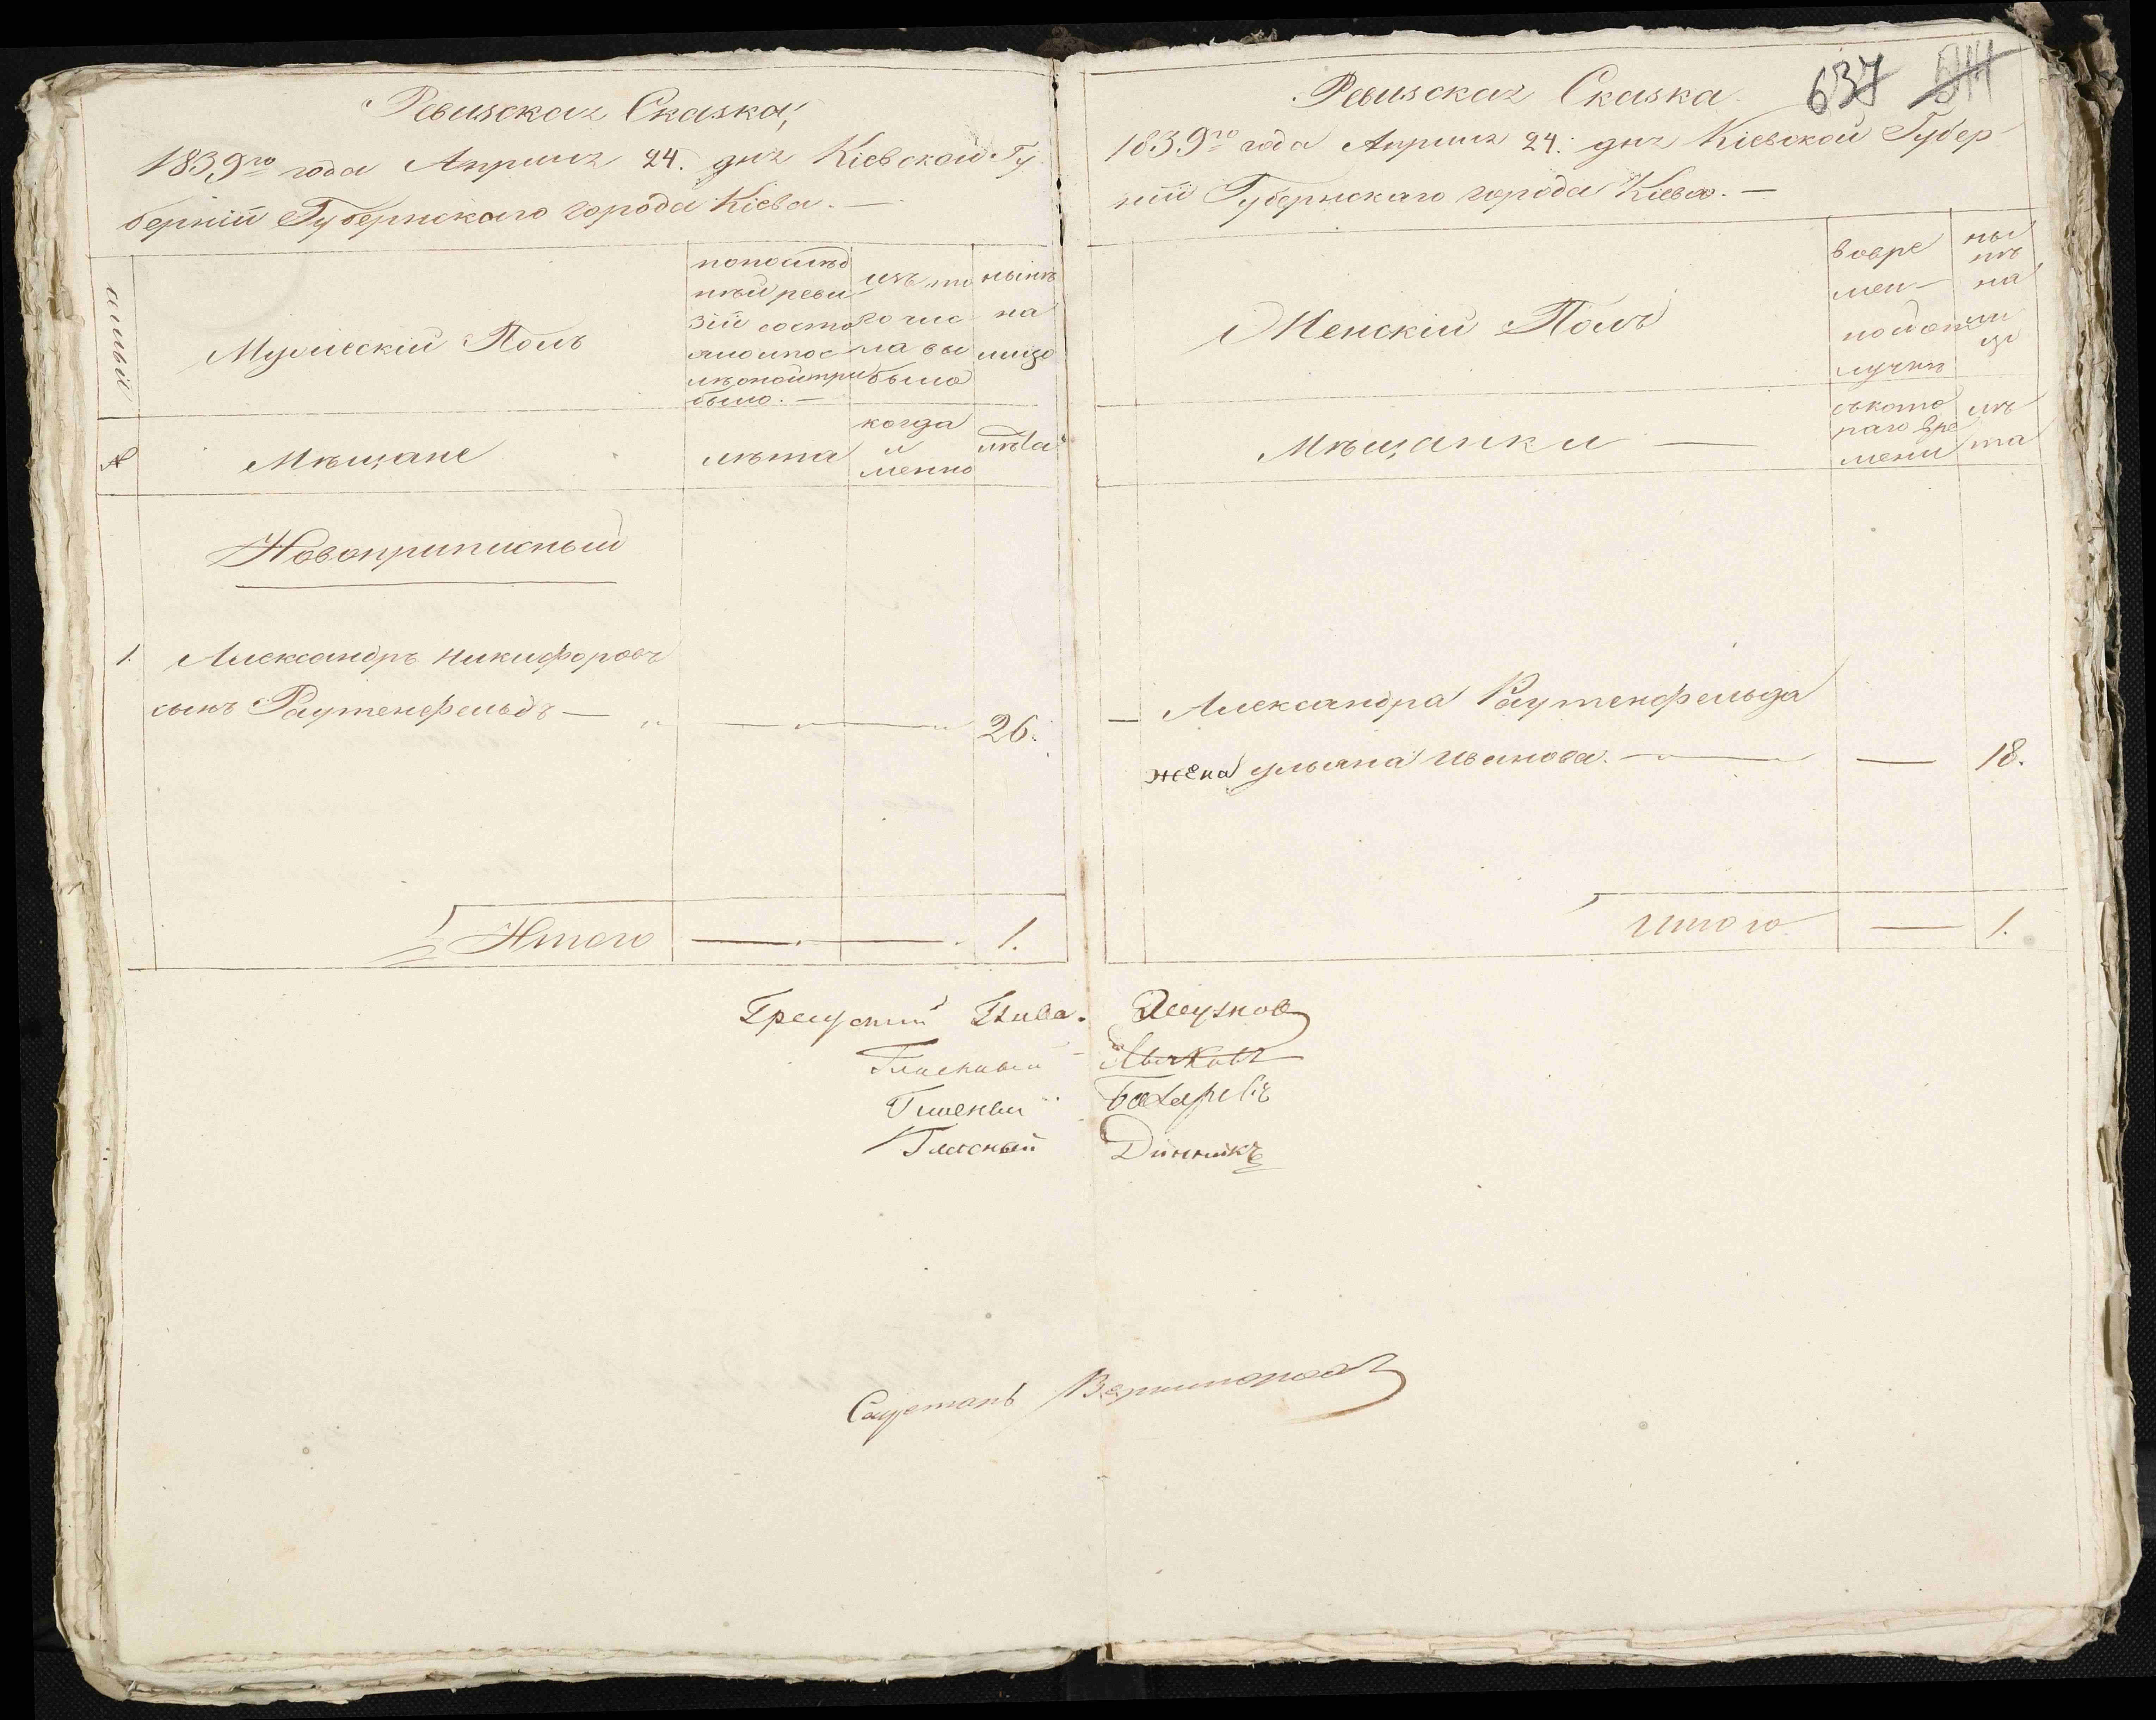 Ревизская Сказка,
1839го года Апреля 24. дня Кіевской Гу
берніи Губернскаго города Кіева. —
семьи
Мужескій Полъ
попослѣд
нѣй реви
зіи состо
яло и пос
лѣ оной при
было. —
изъ то
го чис
ла вы
было
нынѣ
на
лицо
№
Мѣщане
лѣта
когда
и
менно
лѣта
Новоприписный
1. Александръ Никифоровъ
сынъ Раутенфельдъ — 26.
Итого — 1.
637 511
Ревизская Сказка.
1839го года Апреля 24. дня Кіевской Губер
ніи Губернскаго города Кіева. —
Женскій Полъ
вовре
мен —
ной от
лучкѣ
ны
нѣ
на
ли
цо
Мѣщанки —
съкото
раго вре
мени
лѣ
та
— Александра Раутенфельда
жена Ульяна Иванова. — 18.
Итого — 1.
Градский Глава.
Гласный
Гласный Бахаревъ
Гласный Динникъ